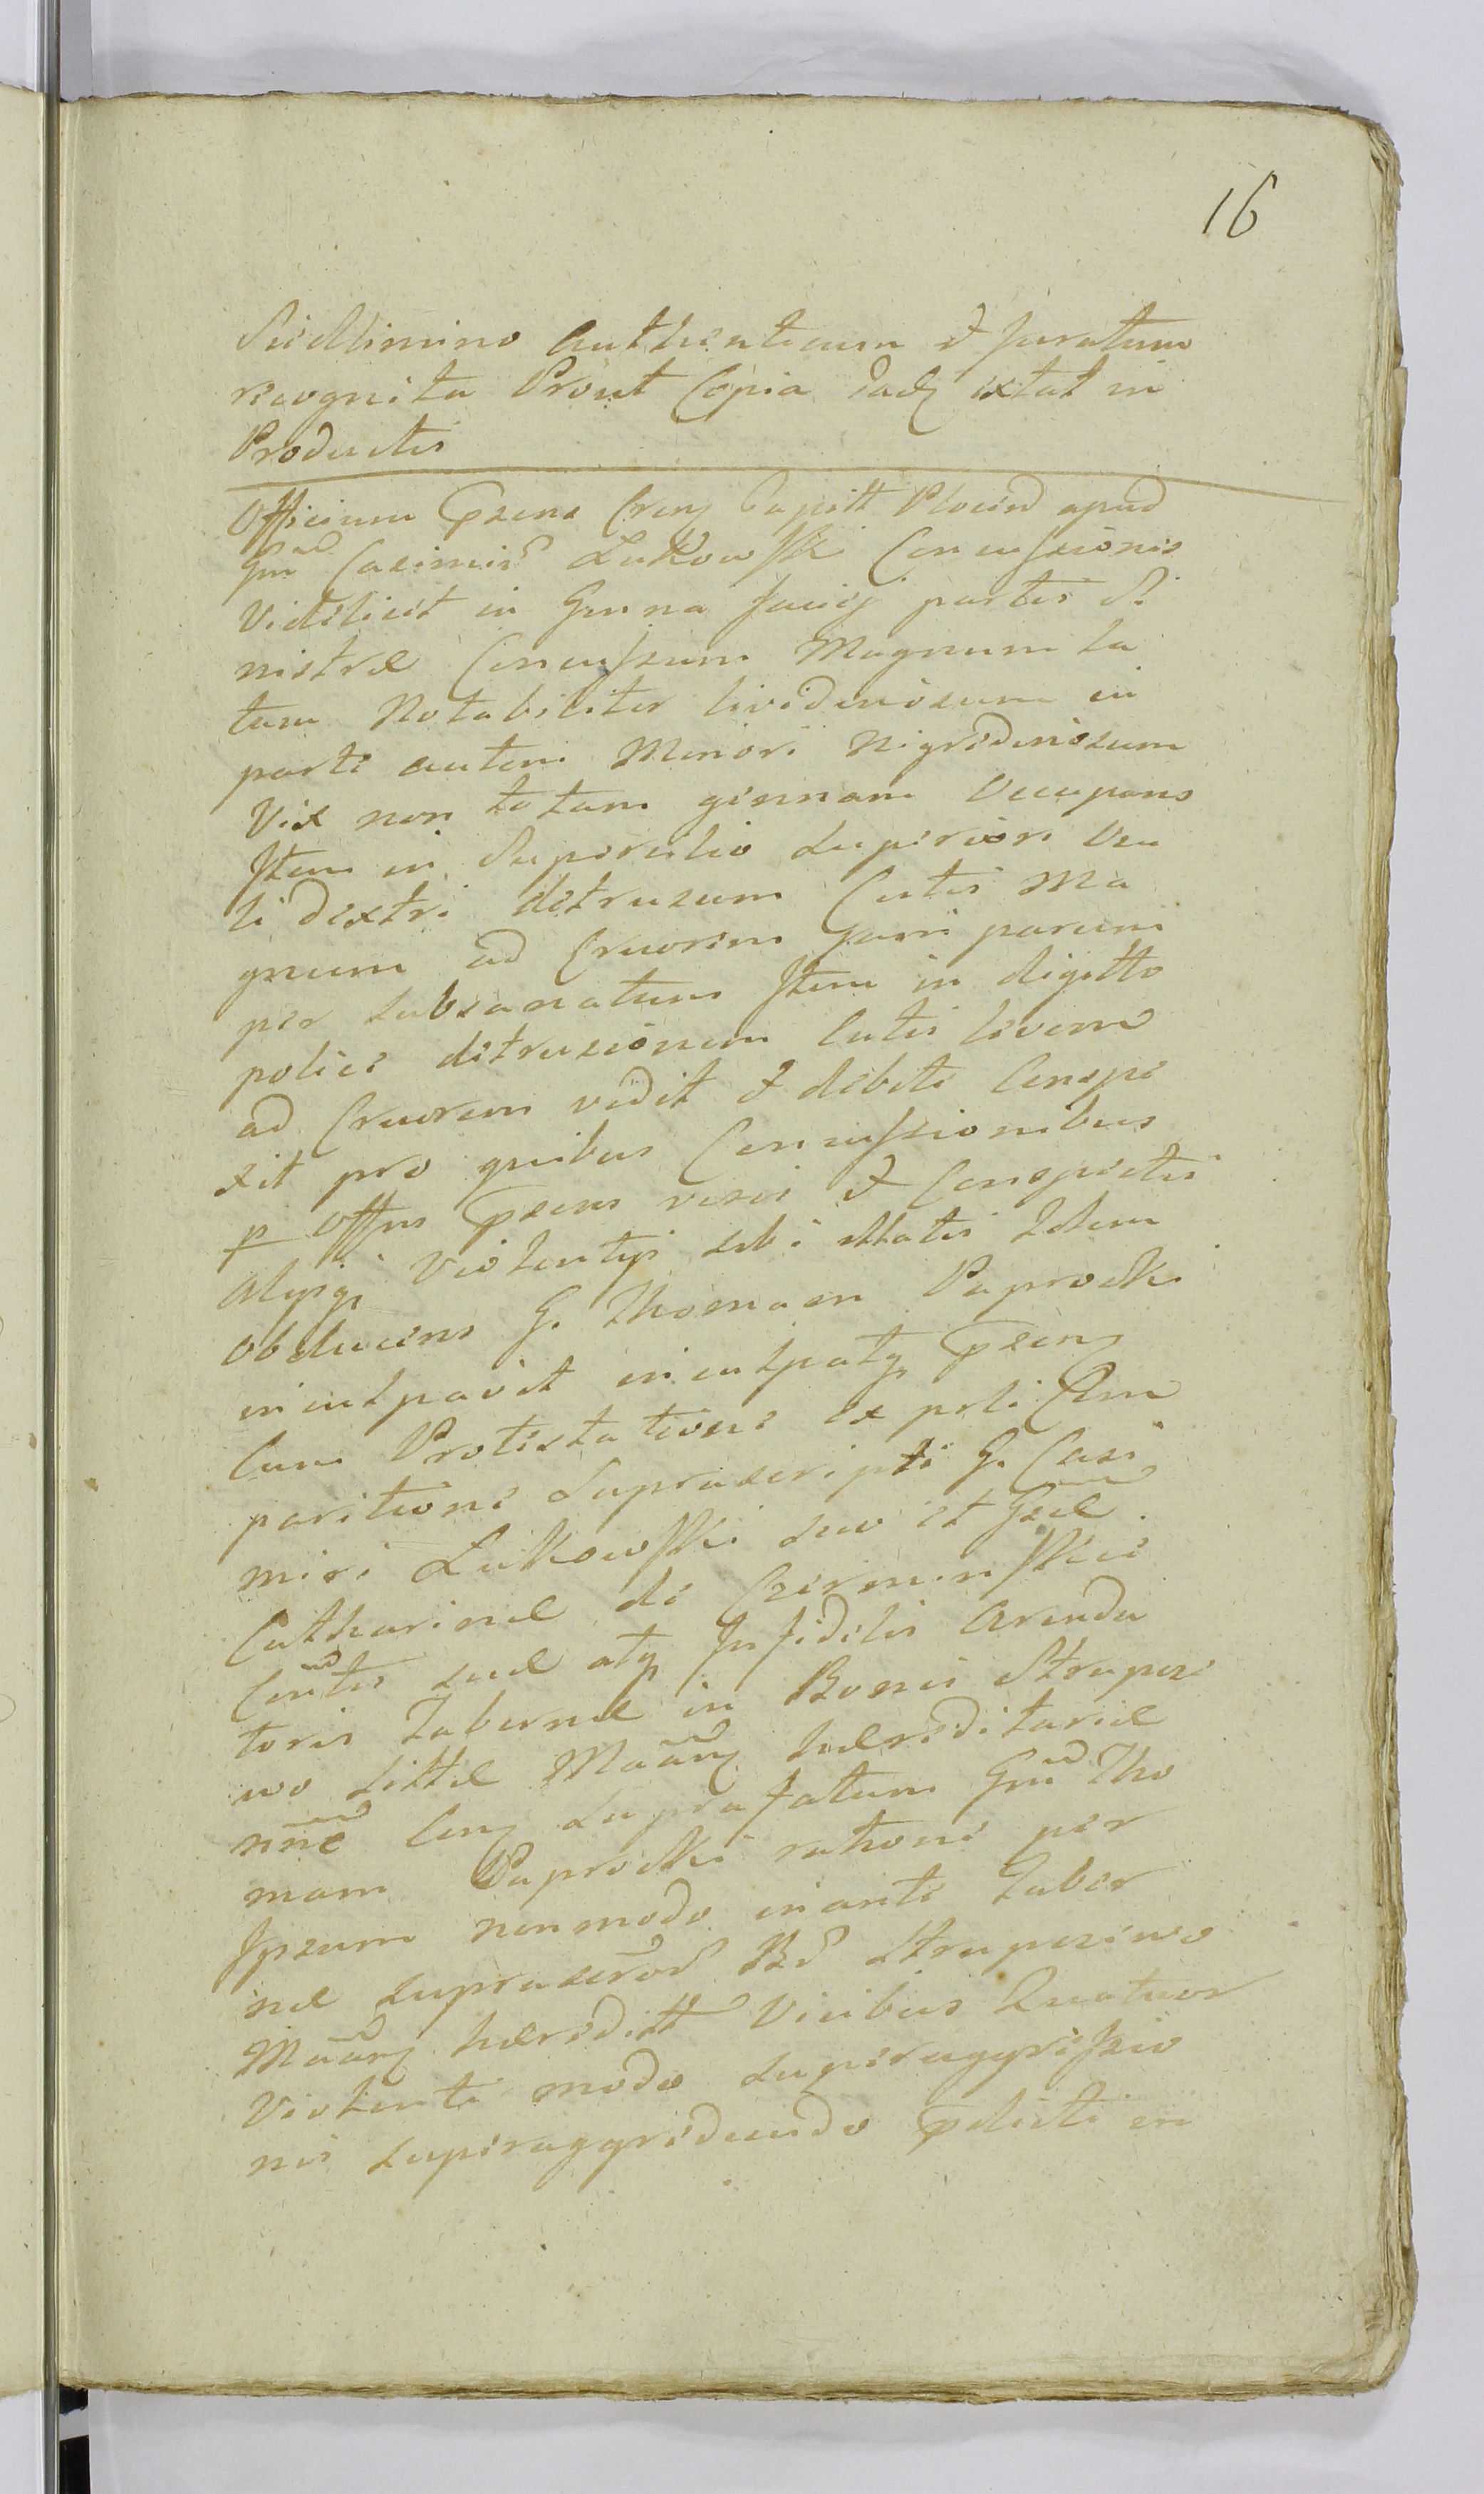 16
Siedlimino Authenticum et Juratum
recognita Prout Copia eadz extat in
Productis
Officium Pzens Crenz Capitt Plocens apud
Gnu Casimir Lukowski Concussionis
Videlicet in Genna faciej partis Si
nistræ Concussum Magnum la
tum Notabiliter lividinosum in
parte autem Minori Nigredinosum
Vix non totam gennam Occupans
Item in Supercilio Superiori Ocu
li dextri detrusum Cutis Ma
gnum ad Cruorem jam parum
per subsanatum Item in digitto
police detrusionem Cutis levem
ad Cruorem vidit et debite Conspe
xit pro quibus Concussionibus
p offm pzens visis et Conspectis
alysqz Violentijs sibi illatis Idem
obducens G. Thomaem Paprocki
inculpavit inculpatqz pzenz
Cum Protestatione ex psli Com
paritione Suprascripti G. Casi
miri Lukowski suo et Gzæ
Catharinæ de Czerminskie
Contis suæ atqz Infidelis Arenda
toris Tabernæ in Bonis Strupcze
wo sittæ Maanz hæreditariæ
nne Conz suprafatum Gnu Tho
mam Paprocki ratione per
Ipsum nonmodo in ante Taber
næ suprascrod Bd Strupczewo
Maanz hæreditt Vicibus Quatuor
Violenti modo superaggressio
nis superaggrediendo